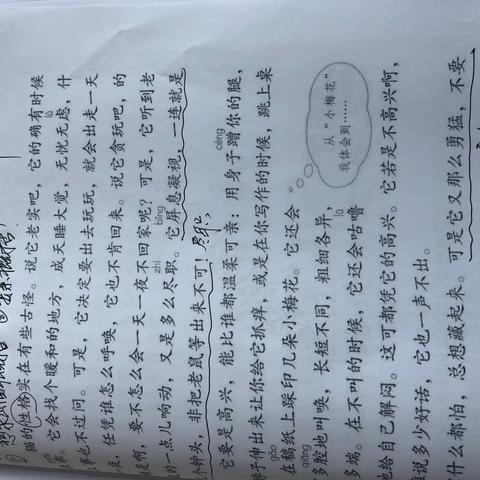 的性格实在有些古怪。说它老实吧，它的确有时候
lǜ
它会找个暖和的地方，成天睡大觉，无忧无虑，什
事也不过问。可是，它决定要出去玩玩，就会出走一天
夜，任凭谁怎么呼唤，它也不肯回来。说它贪玩吧，的
是啊，要不怎么会一天一夜不回家呢？可是，它听到老
zhí bǐng
的一点儿响动，又是多么尽职。它屏息凝视，一连就是
钟头，非把老鼠等出来不可！
cèng
它要是高兴，能比谁都温柔可亲：用身子蹭你的腿，
脖子伸出来让你给它抓痒，或是在你写作的时候，跳上桌
gǎo
在稿纸上踩印几朵小梅花。它还会
qiāng
多腔地叫唤，长短不同，粗细各异，
lū
多端。在不叫的时候，它还会咕噜
从“小梅花”
我体会到……
地给自己解闷。这可都凭它的高兴。它若是不高兴啊，
谁说多少好话，它也一声不出。
什么都怕，总想藏起来。可是它又那么勇猛，不要